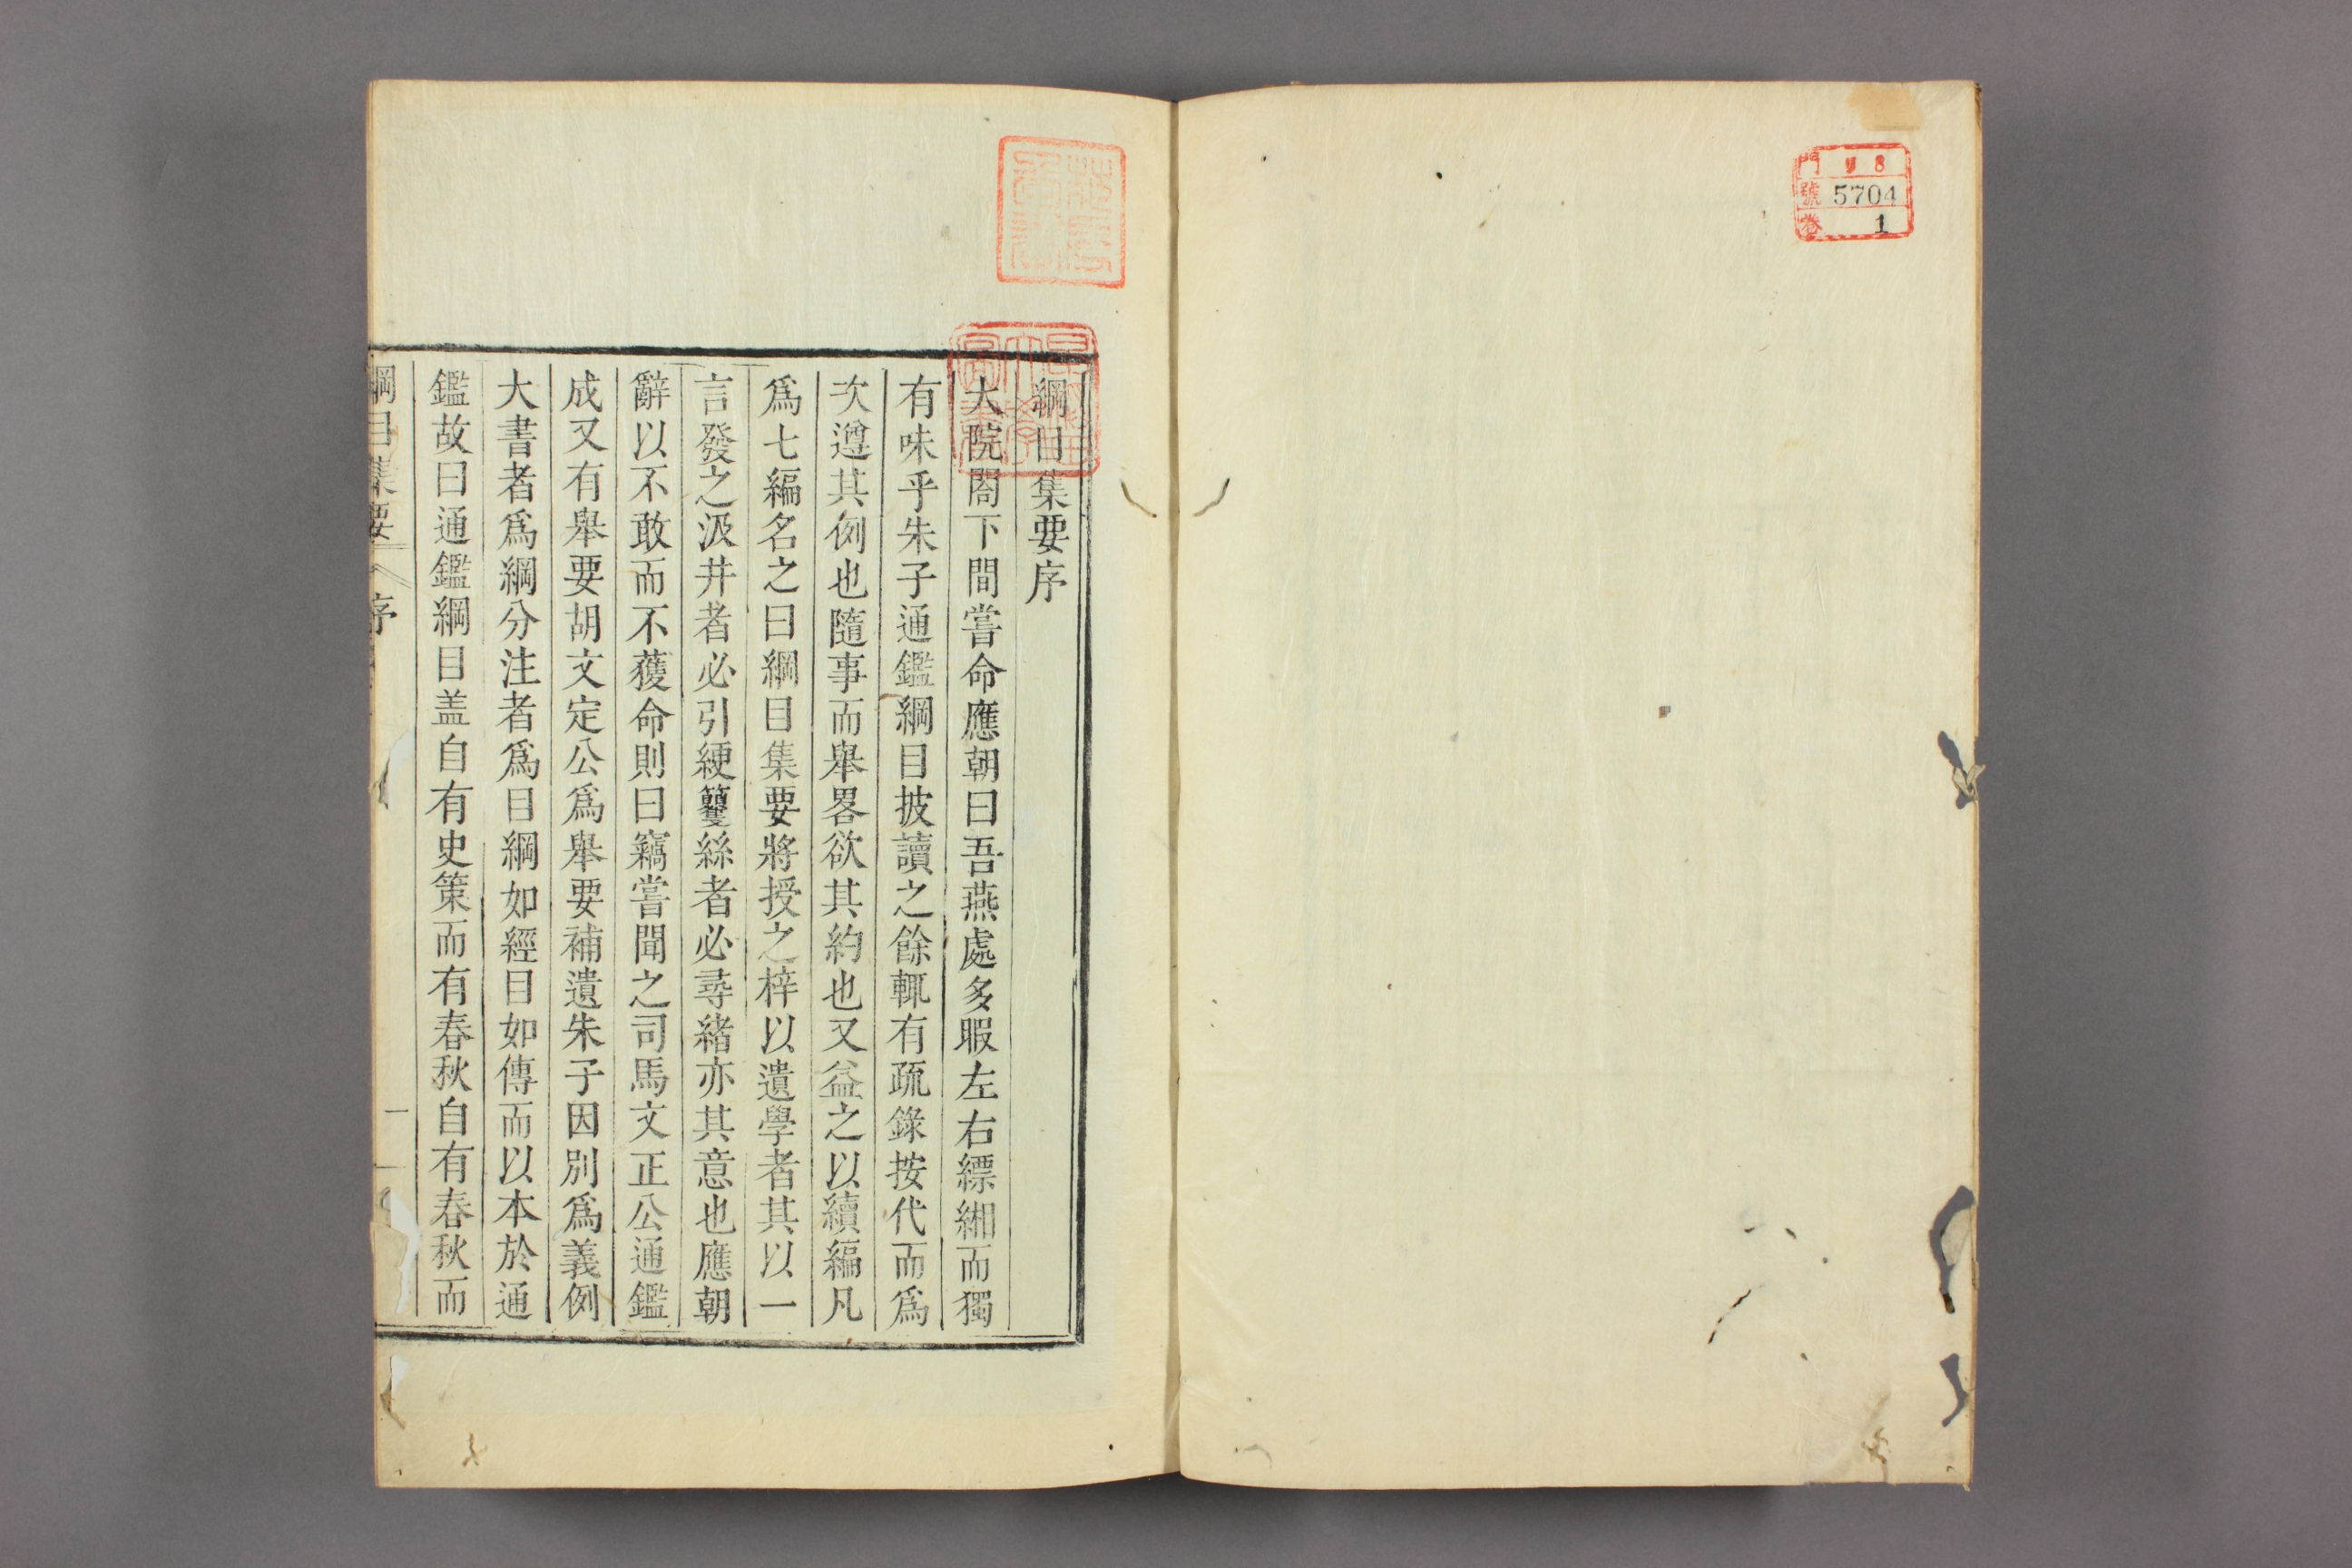 門 8
號 5704
卷 1
綱目集要序
大院閤下間嘗命應朝曰吾燕處多暇左右縹緗而獨
有味乎朱子通鑑綱目披讀之餘輒有疏錄按代而爲
次遵其例也隨事而舉畧欲其約也又益之以續編凡
爲七編名之曰綱目集要將授之梓以遺學者其以一
言發之汲井者必引綆籰絲者必尋緒亦其意也應朝
辭以不敢而不獲命則曰竊嘗聞之司馬文正公通鑑
成又有舉要胡文定公爲舉要補遺朱子因別爲義例
大書者爲綱分注者爲目綱如經目如傳而以本於通
鑑故曰通鑑綱目盖自有史策而有春秋自有春秋而
綱目集要 序 一